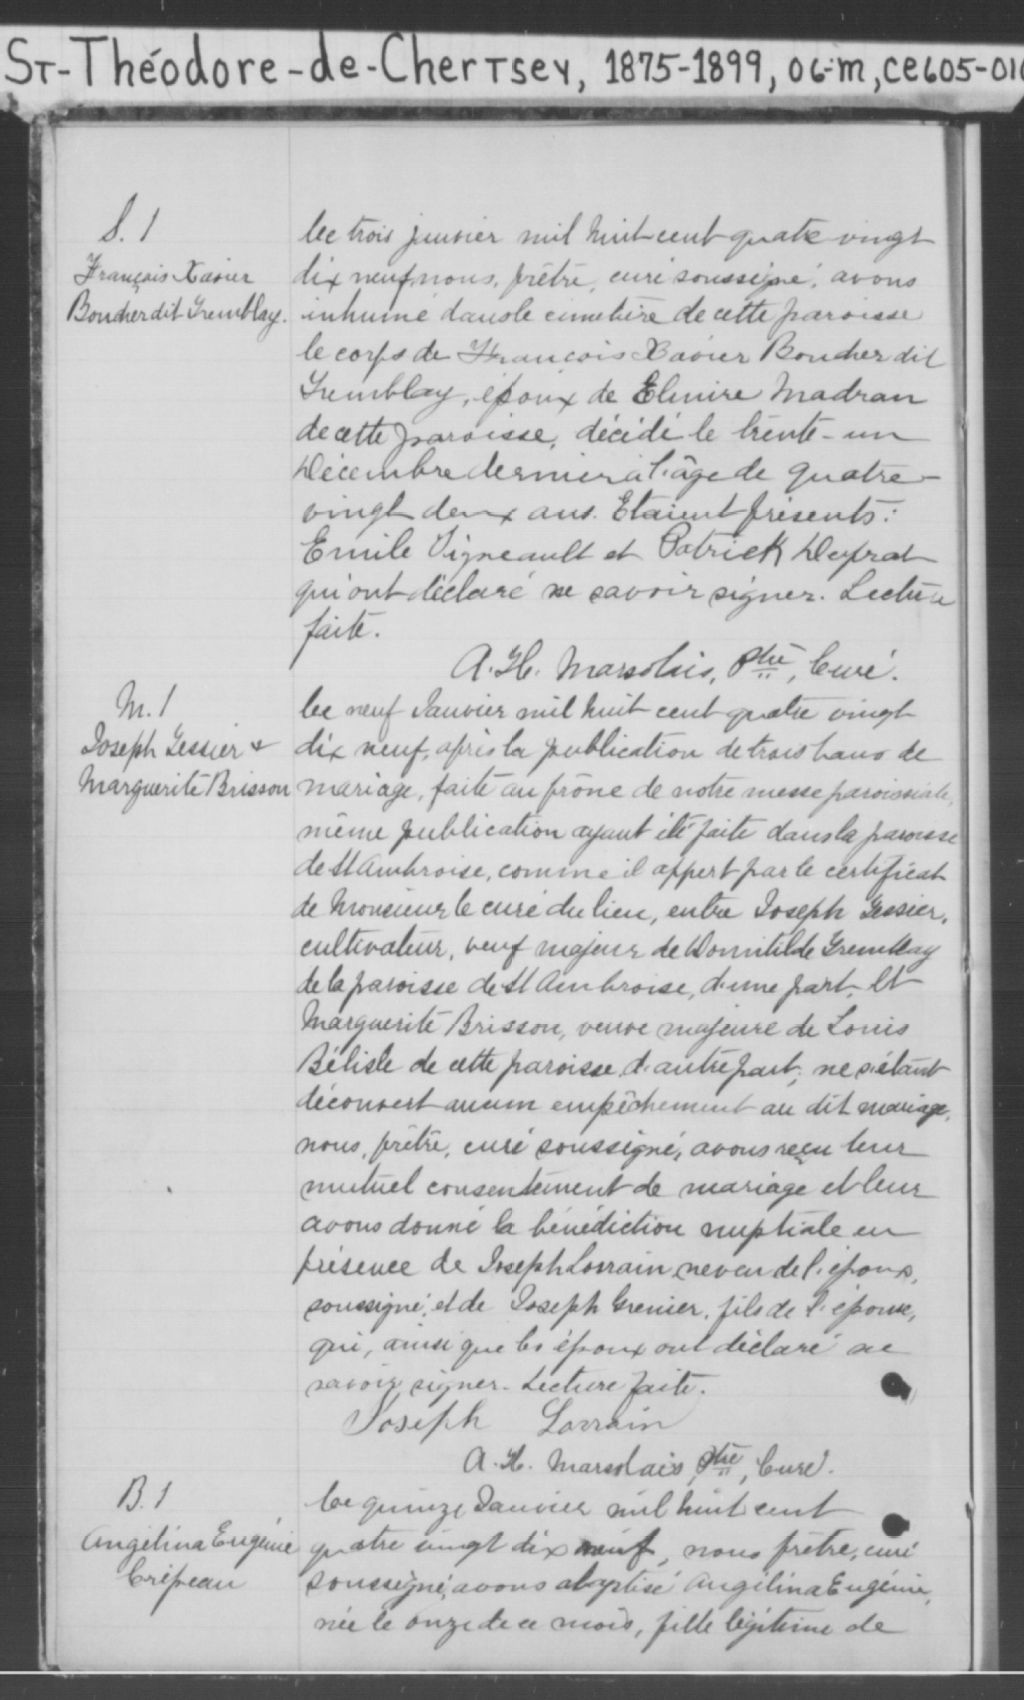 St-Théodore-de-Chertsey, 1875-1899, 06-m, CE605-010
S. 1
François Xavier
Boucher dit Tremblay.
Ce trois janvier mil huit cent quatre vingt
dix neuf nous, prêtre, curé soussigné, avons
inhumé dans le cimetière de cette paroisse
le corps de François Xavier Boucher dit
Tremblay, époux de Elmire Madran
de cette paroisse, décédé le trente-un
Décembre dernier à l'âge de quatre-
vingt deux ans. Etaient présents:
Emile Vigneault et Patrick Duprat
qui ont déclaré ne savoir signer. Lecture
faite.
A. H. Marsolais, Ptre, Curé.
M. 1
Joseph Tessier &
Marguerite Brisson
Ce neuf Janvier mil huit cent quatre vingt
dix neuf, après la publication de trois bans de
mariage, faite au prône de notre messe paroissiale,
même publication ayant été faite dans la paroisse
de St Ambroise, comme il appert par le certificat
de Monsieur le curé du lieu, entre Joseph Tessier,
cultivateur, veuf majeur de Domitilde Tremblay
de la paroisse de St Ambroise, d'une part, Et
Marguerite Brisson, veuve majeure de Louis
Bélisle de cette paroisse d'autre part; ne s'étant
découvert aucun empêchement au dit mariage,
nous, prêtre, curé soussigné, avons reçu leur
mutuel consentement de mariage et leur
avons donné la bénédiction nuptiale en
présence de Joseph Lorrain neveu de l'époux,
soussigné, et de Joseph Grenier, fils de l'épouse,
qui, ainsi que les époux ont déclaré ne
savoir signer. Lecture faite.
Joseph Lorrain
A. H. Marsolais, Ptre, Curé.
B. 1
Angélina Eugénie
Crépeau
Ce quinze Janvier mil huit cent
quatre vingt dix neuf, nous prêtre, curé
soussigné, avons baptisé Angélina Eugénie,
née le onze de ce mois, fille légitime de